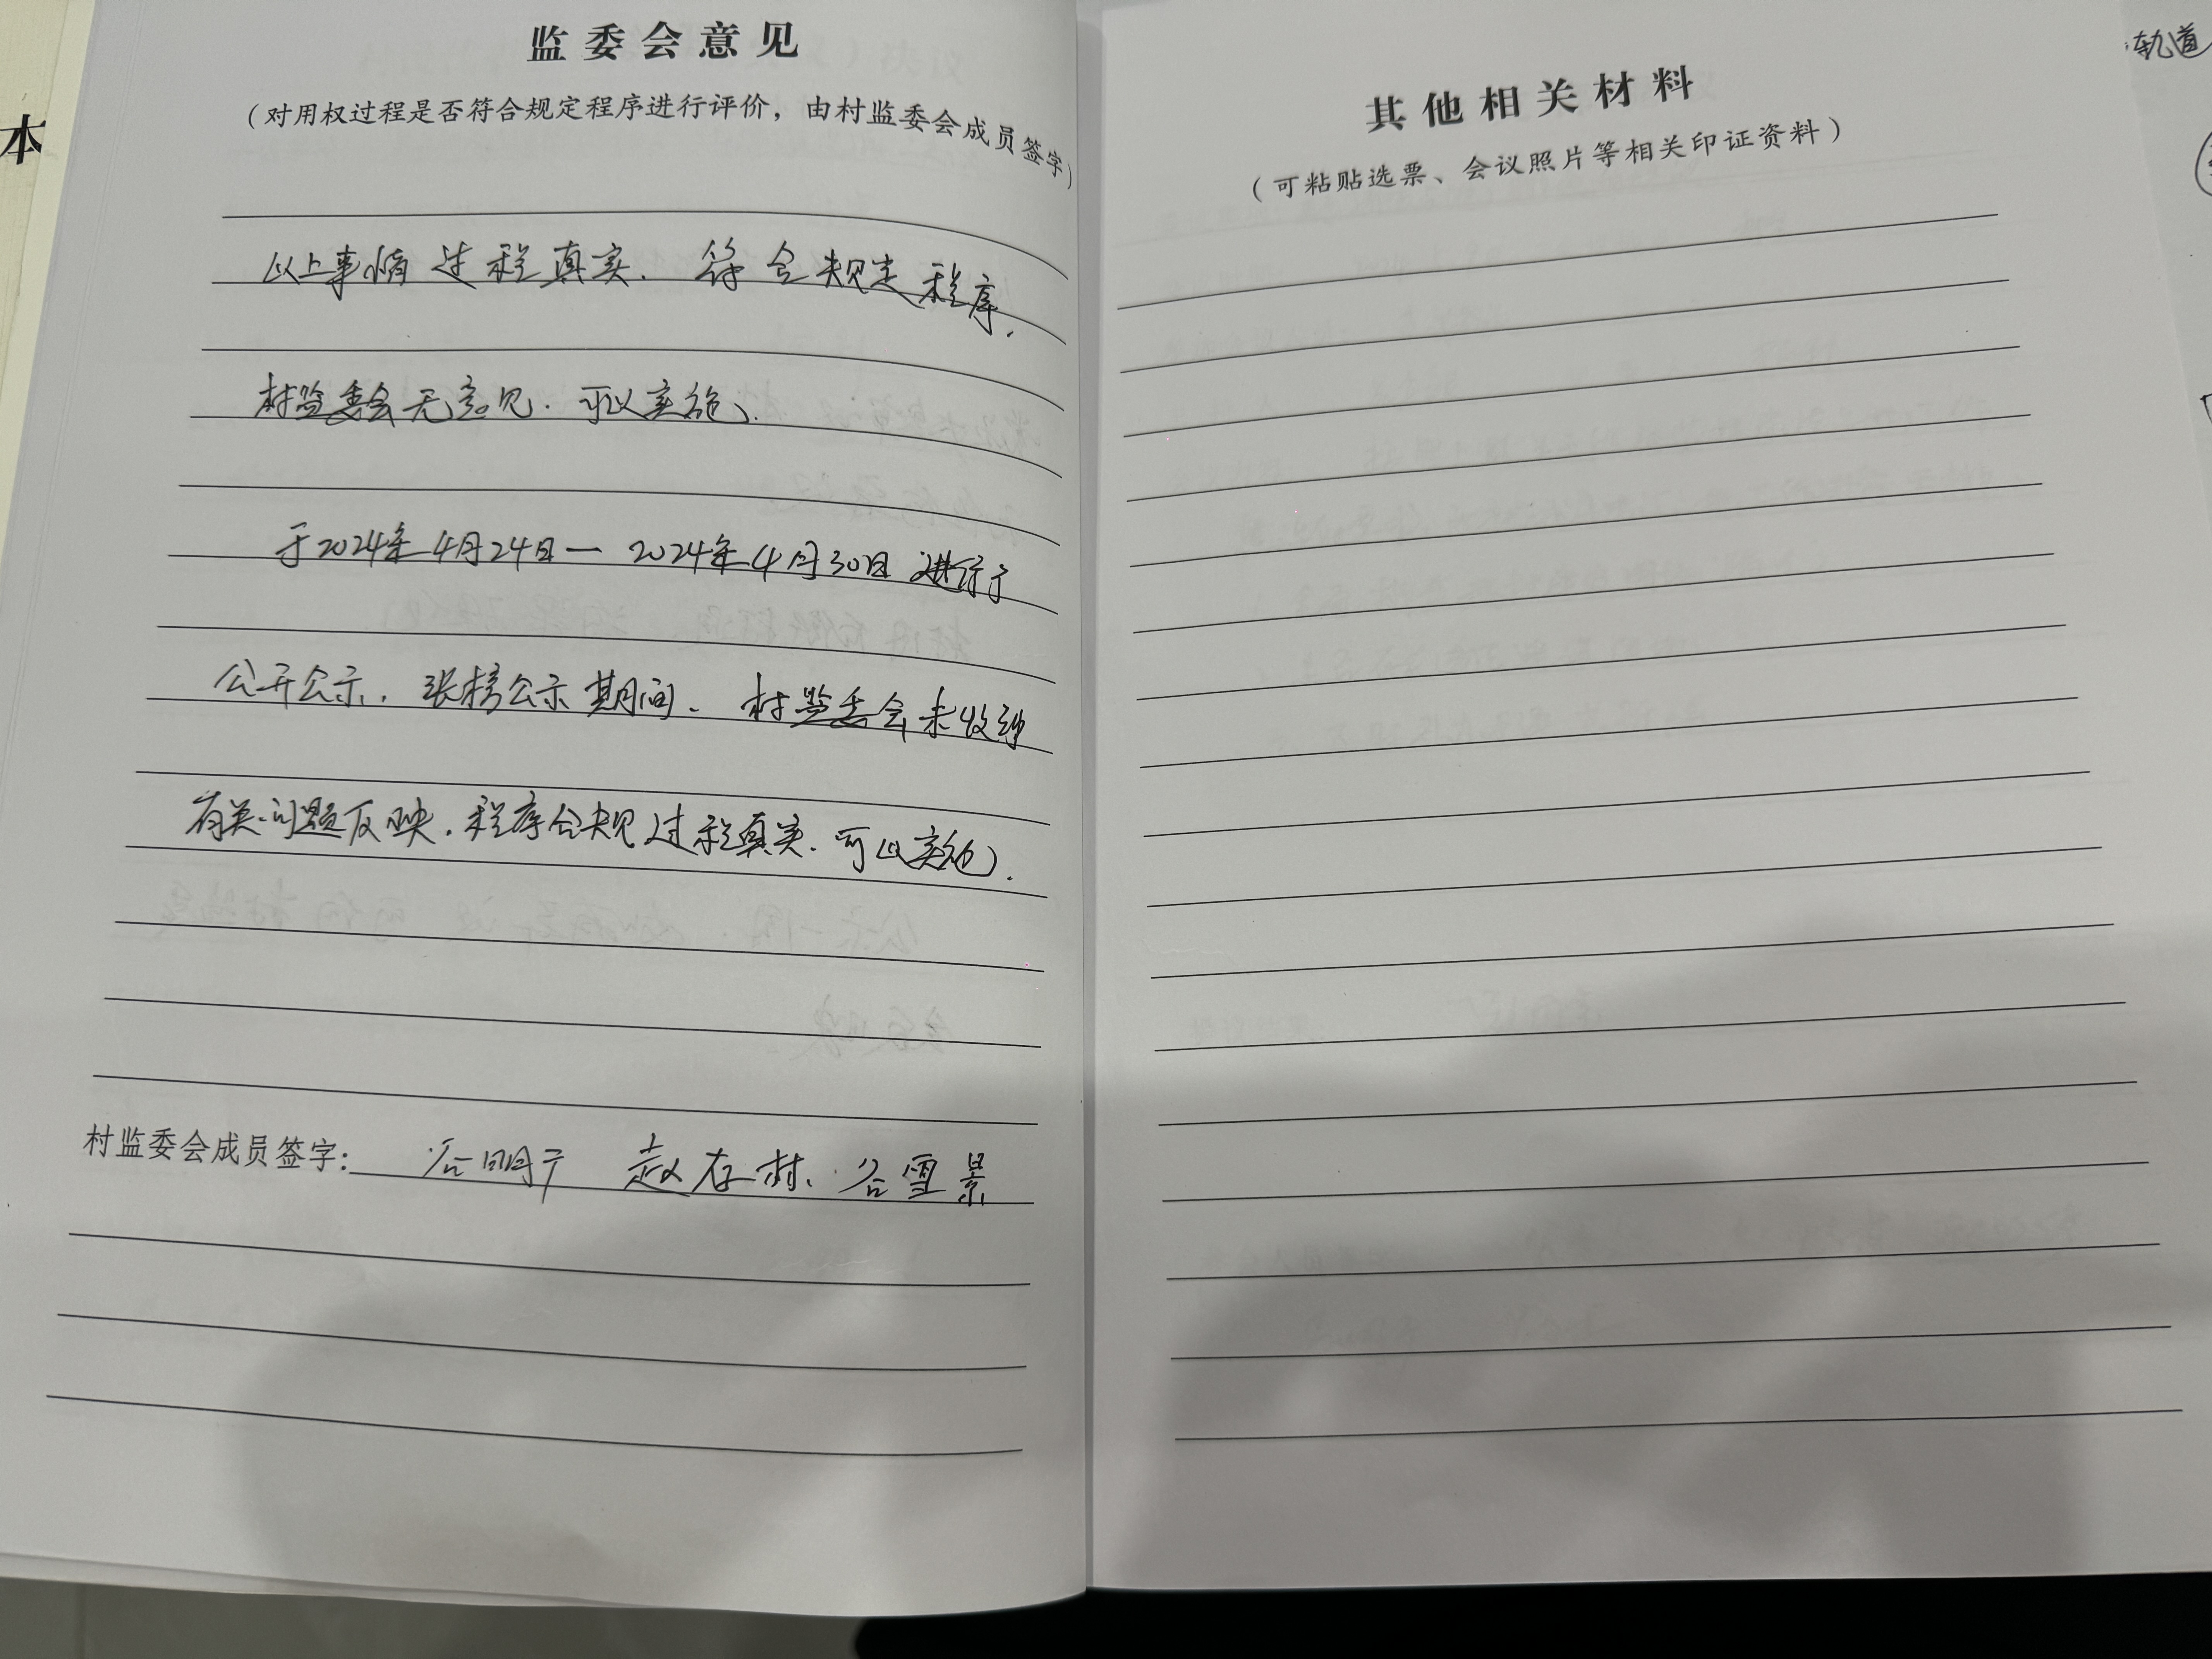 本
监委会意见
（对用权过程是否符合规定程序进行评价，由村监委会成员签字）
以上事情过程真实、符合规定程序、
村监委会无意见．可以实施、
于2024年4月24日一2024年4月30日进行
公开公示．张榜公示期间、村监委会未收到
有关问题反映．程序合规过程真实．可以实施）．
村监委会成员签字：
其他相关材料
（可粘贴选票、会议照片等相关印证资料）
轨道